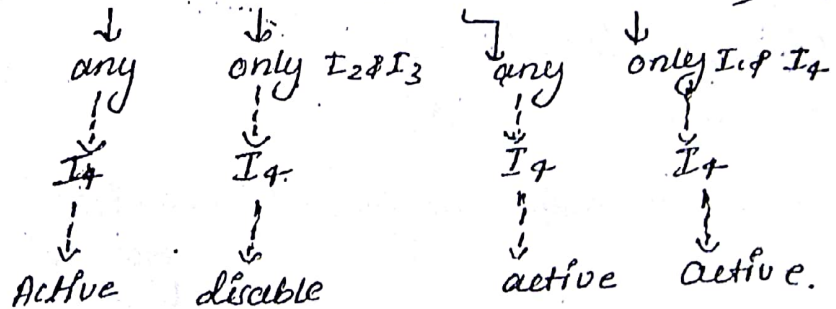 any only I2 & I3 any only I1 & I4
I4 I4 I4 I4
Active disable active active.